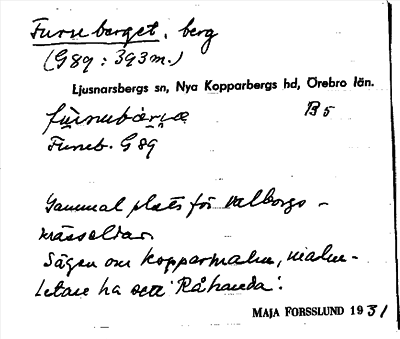 Furuberget, berg
(G89: 393 m.)
Ljusnarsbergs sn, Nya Kopparbergs hd, Örebro län.
B 5
Furub. G 89
Gammal plats för valborgs-
mässeldar.
Sägen om kopparmalm, malm-
letare ha sett "Råhanda".
MAJA FORSSLUND 1931